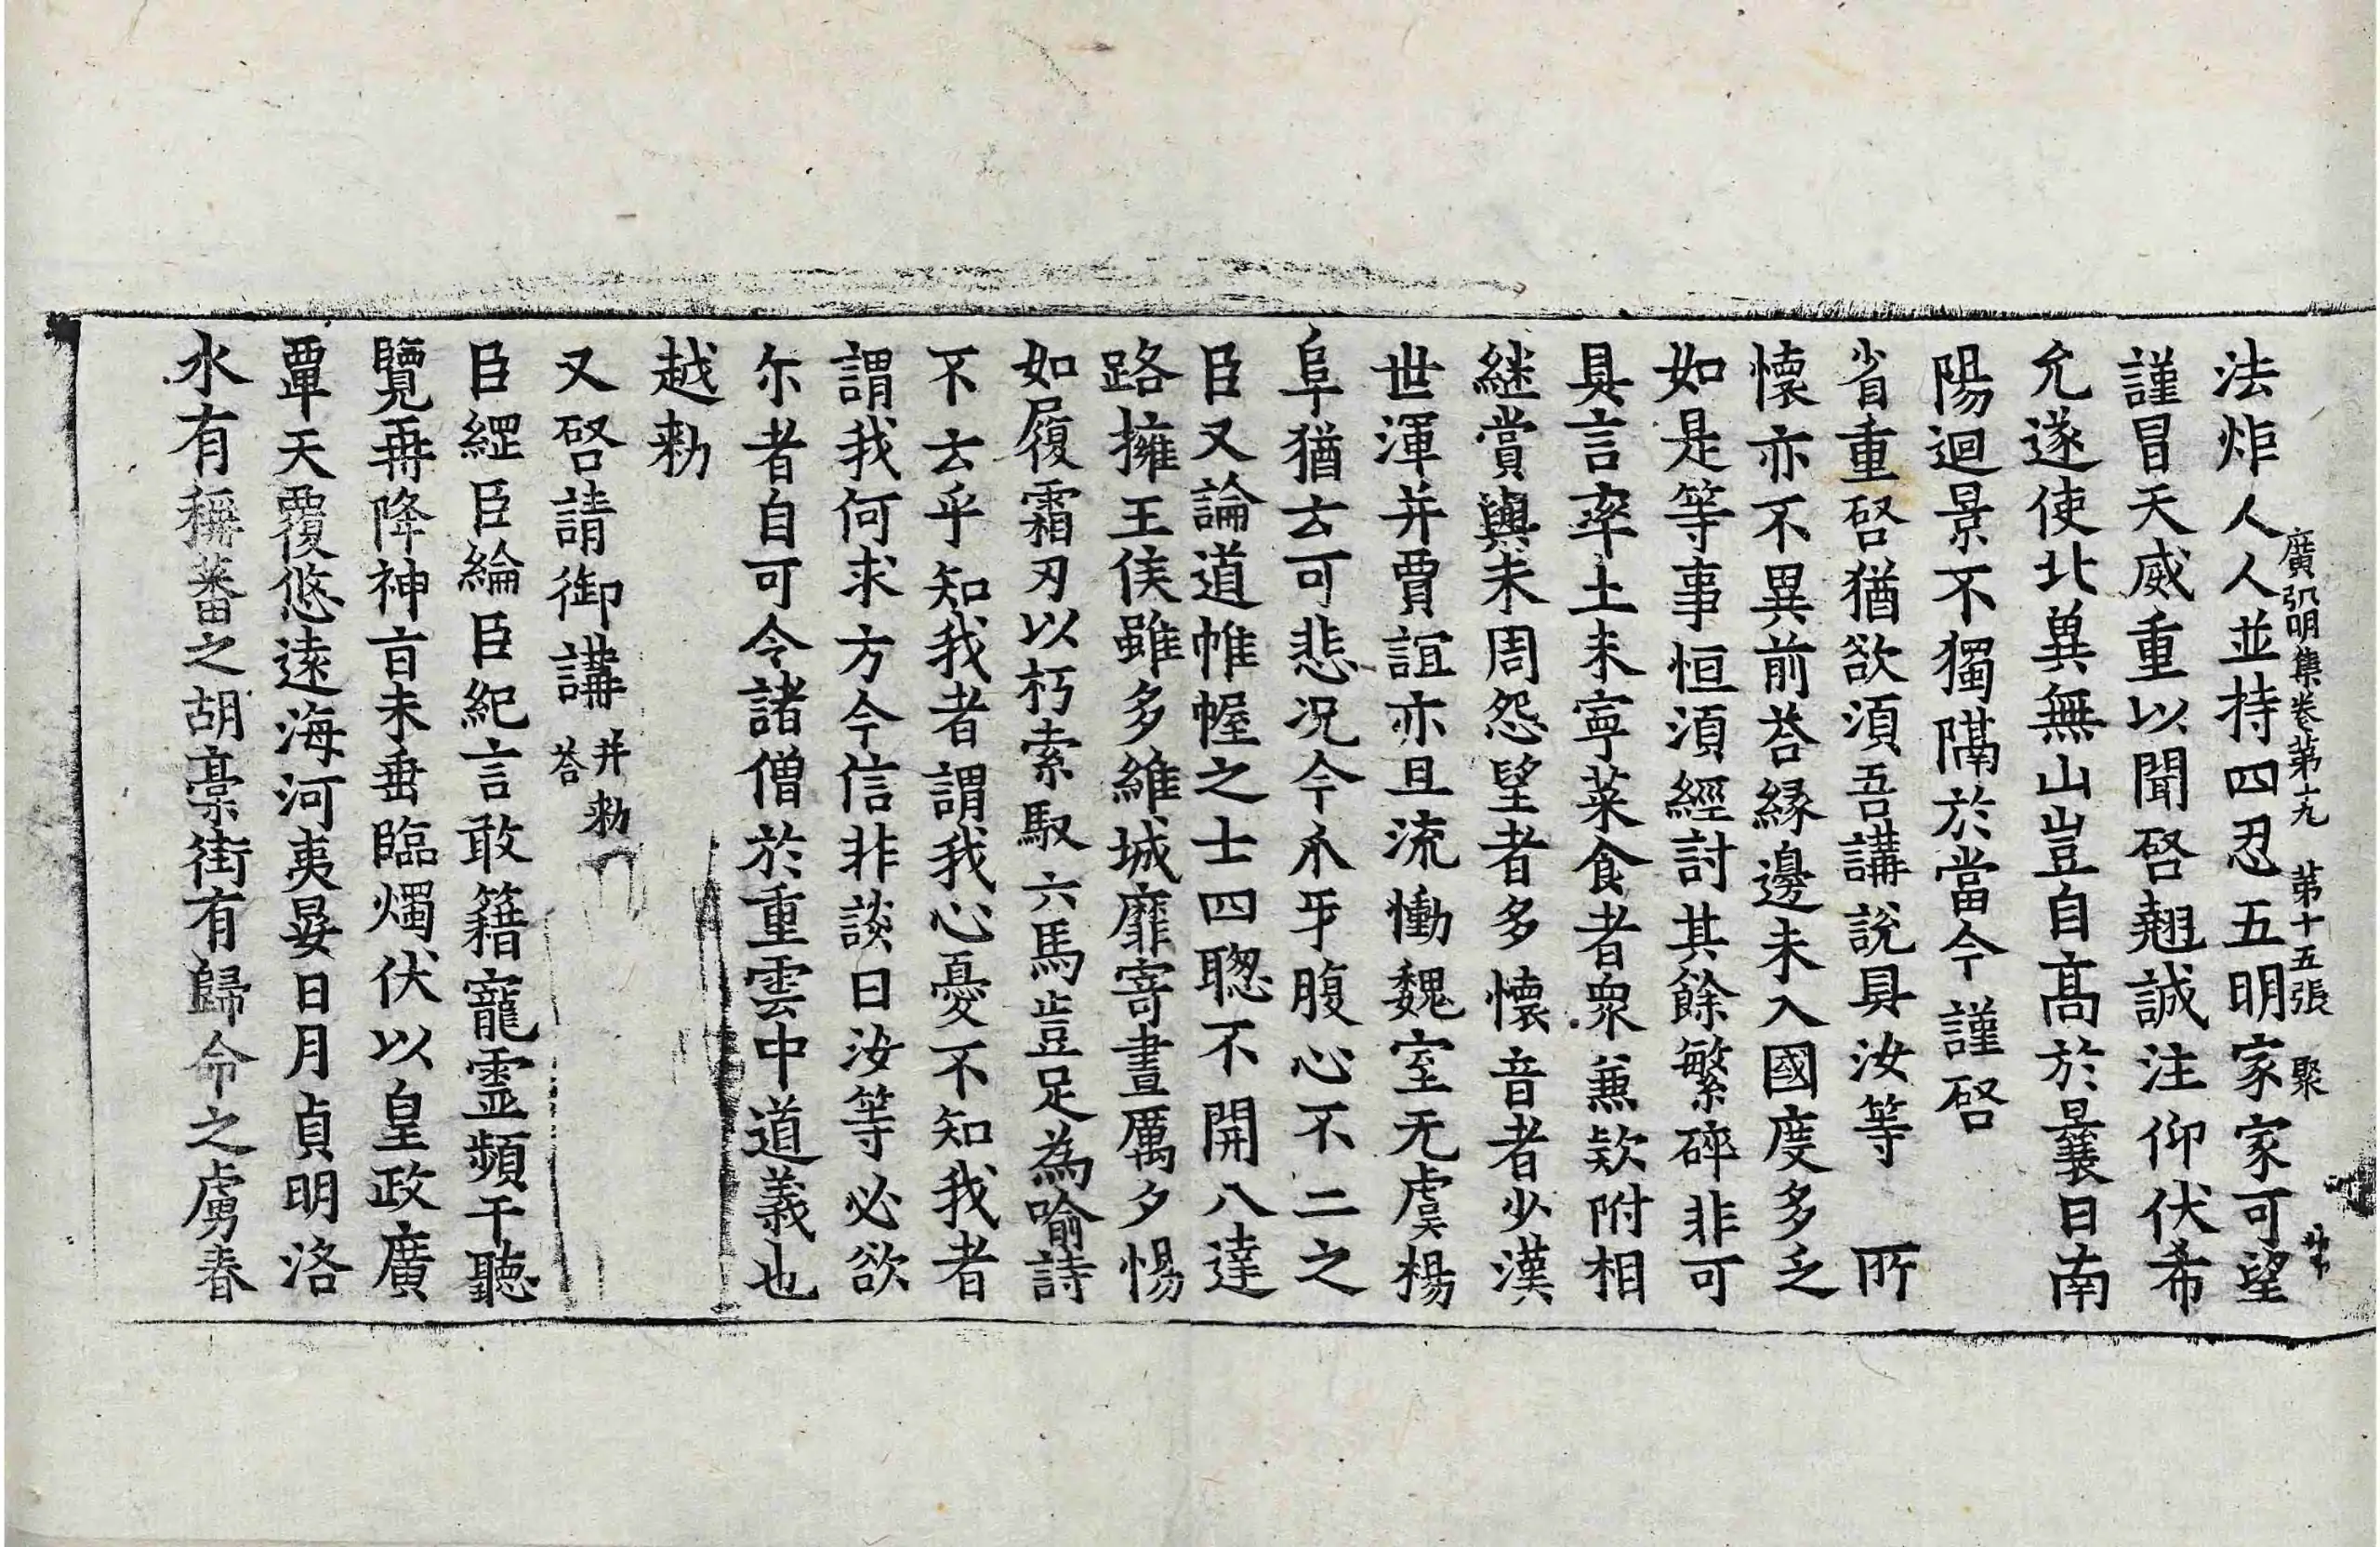 廣弘明集卷第十九 第十五張 聚
法炬人人並持四忍五明家家可望
謹冒天威重以聞啓翹誠注仰伏希
允遂使北㒷無山豈自髙於曩日南
陽迴景不獨隔於當今謹啓
省重啓猶欲湏吾講說具汝等 所
懷亦不異前荅緣邊未入國度多乏
如是等事恒湏經討其餘繁碎非可
具言率土未寧菜食者衆兼欵附相
継賞與未周怨望者多懷音者少漢
世渾并賈誼亦且流慟魏室无虞楊
阜猶云可悲况今永平腹心不二之
臣又論道帷幄之士四聦不開八達
路擁王侯雖多維城靡寄晝厲夕惕
如履霜刃以朽索馭六馬豈足為喻詩
不云乎知我者謂我心憂不知我者
謂我何求方今信非談日汝等必欲
尒者自可令諸僧於重雲中道義也
越勑
又啓請御講并勑荅
臣繹臣綸臣紀言敢籍寵靈頻干聽
覽再降神旨未垂臨燭伏以皇政廣
覃天覆悠遠海河夷晏日月貞明洛
水有稱蕃之胡藁街有歸命之虜春